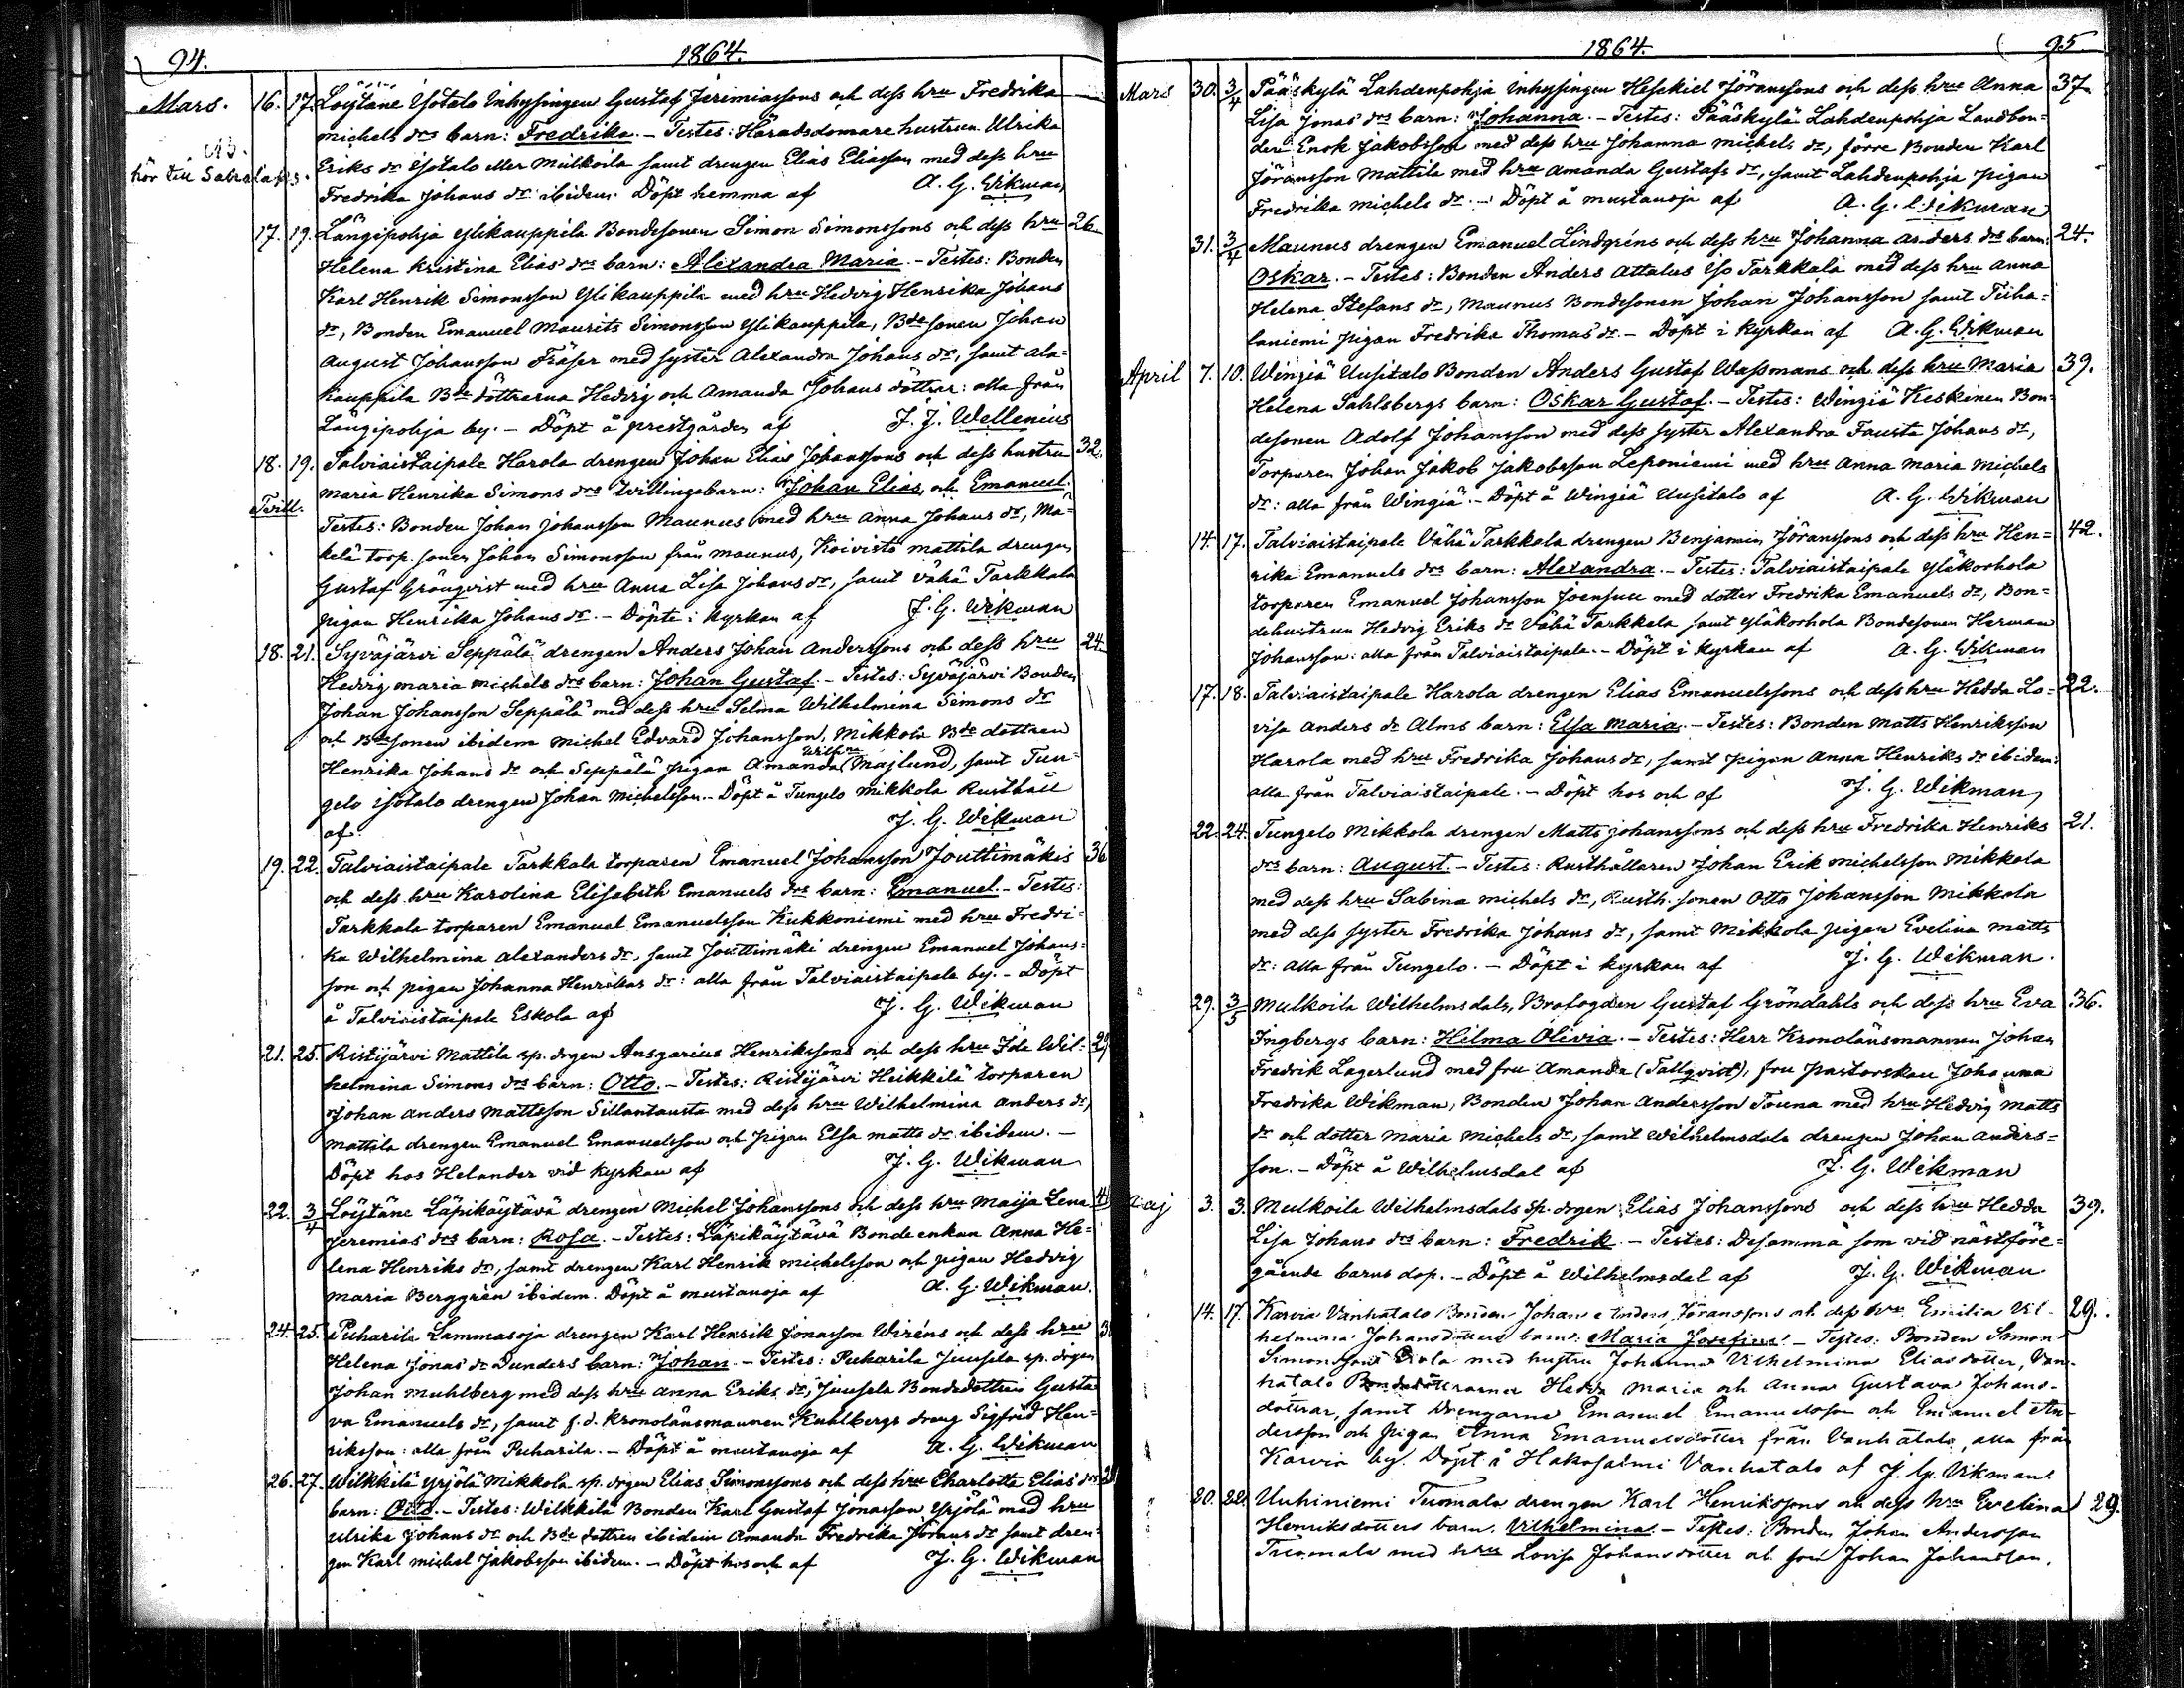 94.
1864.
Mars. 16. 17. Löytäne Ylötalo Inhysingen Gustaf Jerimiassons och dess hru Fredrika
michels drs barn: Fredrika. – Testes: Häradsdomare hustrun Ulrika
hör till Eriks dr Ylötalo eller Mulkoila samt drengen Elias Eliasson med dess hru
Fredrika Johans dr ibidem. Döpt hemma af A. G. Wikman
17. 19. Längipohja Ylikauppila Bondesonen Simon Simonssons och dess hru 26.
Helena Kristina Elias drs barn: Alexandra Maria. – Testes: Bonden
Karl Henrik Simonsson Ylikauppila med hru Hedvig Henrika Johans
dr, Bonden Emanuel Maurits Simonsson Ylikauppila, Bde sonen Johan
August Johansson Fräser med syster Alexandra Johans dr, samt Ala=
kauppila Bde döttrarna Hedvig och Amanda Johans döttrar: alla från
Längipohja by. – Döpt å prestgården af J. J. Wellenius
18. 19. Talviaistaipale Harola drengen Johan Elias Johanssons och dess hustru 32.
Tvill. Maria Henrika Simons drs tvillingebarn: Johan Elias, och Emanuel.
Testes: Bonden Johan Johansson Maunus med hru Anna Johans dr, Mä=
kelä torp. sonen Johan Simonsson från Maunus, Koivisto Mattila drengen
Gustaf Grönqvist med hru Anna Lisa Johans dr, samt Vähä Tarkkala
pigan Henrika Johans dr. – Döpte i kyrkan af J. G. Wikman
18. 21. Syväjärvi Seppälä drengen Anders Johan Anderssons och dess hru 24.
Hedvig Maria Michels drs barn: Johan Gustaf. – Testes: Syväjärvi Bonden
Johan Johansson Seppälä med dess hru Selma Wilhelmina Simons dr
och Bde sonen ibidem Michel Edvard Johansson, Mikkola Bde dottren
Henrika Johans dr och Seppälä pigan Amanda Wilhna Majlund, samt Tun=
gelo Isotalo drengen Johan Michelsson. – Döpt å Tungelo Mikkola Rusthåll
af J. G. Wikman
19. 22. Talviaistaipale Tarkkala torparen Emanuel Johansson Jouttimäkis 36
och dess hru Karolina Elisabeth Emanuels drs barn: Emanuel. – Testes:
Tarkkala torparen Emanuel Emanuelsson Kukkoniemi med hru Fredri=
ka Wilhelmina Alexanders dr, samt Jouttimäki drengen Emanuel Johans=
son och pigan Johanna Henriks dr: alla från Talviaistaipale by. – Döpt
å Talviaistaipale Eskola af J. G. Wikman
21. 25. Ristijärvi Mattila sp. drgen Ansgarius Henrikssons och dess hru Ida Wil=
helmina Simons drs barn: Otto. – Testes: Ristijärvi Heikkilä torparen
Johan Anders Mattsson Sillantausta med dess hru Wilhelmina Anders dr,
Mattila drengen Emanuel Emanuelsson och pigan Elsa Matts dr ibidem. –
Döpt hos Helander vid kyrkan af J. G. Wikman
22. 3/4 Löytäne Läpikäytävä drengen Michel Johanssons och dess hru Maija Lena
Jeremias drs barn: Rosa. – Testes: Läpikäytävä Bonde enkan Anna He=
lena Henriks dr, samt drengen Karl Henrik Michelsson och pigan Hedvig
Maria Berggrén ibidem. Döpt å Mustanoja af A. G. Wikman.
24. 25. Puharila Lammasoja drengen Karl Henrik Jonasson Wiréns och dess hru
Helena Jonas dr Dunders barn: Johan. – Testes: Puharila Juusela sp. drgen
Johan Muhlberg med dess hru Anna Eriks dr, Juusela Bondedottren Gusta
va Emanuels dr, samt f.d. Kronolänsmannen Kuhlbergs dreng Sigfrid Hen=
riksson: alla från Puharila. – Döpt å Mustanoja af A. G. Wikman
26. 27. Wilkkilä Yrjölä Mikkola sp. drgen Elias Simonssons och dess hru Charlotta Elias drs
barn: Otto. – Testes: Wilkkilä Bonden Karl Gustaf Jonasson Yrjölä med hru
Ulrika Johans dr och Bde dottren ibidem Amanda Fredrika Jörans dr samt dren=
gen Karl Michel Jakobsson ibidem. – Döpt hos och af J. G. Wikman
1864.
95
Mars 30. 3/4 Pääskylä Lahdenpohja Inhysingen Heskiel Jöranssons och dess hru Anna 37.
Lisa Jonas drs barn: Johanna. – Testes: Pääskylä Lahdenpohja Landbon=
den Enok Jakobsson med dess hru Johanna Michels dr, förre Bonden Karl
Jöransson Mattila med hru Amanda Gustafs dr, samt Lahdenpohja pigan
Fredrika Michels dr. – Döpt å Mustanoja af A. G. Wikman
31. 3/4 Maunus drengen Emanuel Lindgréns och dess hru Johanna Anders drs barn: 24.
Oskar. – Testes: Bonden Anders Attalus Iso Tarkkala med dess hru Anna
Helena Stefans dr, Maunus Bondesonen Johan Johansson samt Tiiha=
laniemi pigan Fredrika Thomas dr. – Döpt i kyrkan af A. G. Wikman
April 7. 10. Wingiä Uusitalo Bonden Anders Gustaf Wassmans och dess hru Maria 39.
Helena Sahlsbergs barn: Oskar Gustaf. – Testes: Wingiä Keskinen Bon=
desonen Adolf Johansson med dess syster Alexandra Fausta Johans dr,
Torparen Johan Jakob Jakobsson Leponiemi med hru Anna Maria Michels
dr: alla från Wingiä. – Döpt å Wingiä Uusitalo af A. G. Wikman
14. 17. Talviaistaipale Vähä Tarkkala drengen Benjamin Jöranssons och dess hru Hen= 42.
rika Emanuels drs barn: Alexandra. – Testes: Talviaistaipale Yläkorhola
torparen Emanuel Johansson Joensuu med dotter Fredrika Emanuels dr, Bon=
dehustrun Hedvig Eriks dr Vähä Tarkkala samt Yläkorhola Bondesonen Herman
Johansson: alla från Talviaistaipale. – Döpt i kyrkan af A. G. Wikman
17. 18. Talviaistaipale Harola drengen Elias Emanuelssons och dess hru Hedda Lo= 22.
visa Anders dr Alms barn: Elsa Maria. – Testes: Bonden Matts Henriksson
Harola med hru Fredrika Johans dr, samt pigan Anna Henriks dr ibidem:
alla från Talviaistaipale. – Döpt hos och af J. G. Wikman
22. 24. Tungelo Mikkola drengen Matts Johanssons och dess hru Fredrika Henriks 21.
drs barn: August. – Testes: Rusthållaren Johan Erik Michelsson Mikkola
med dess hru Sabina Michels dr, Rusth. sonen Otto Johansson Mikkola
med dess syster Fredrika Johans dr, samt Mikkola pigan Evelina Matts
dr: alla från Tungelo. – Döpt i kyrkan af J. G. Wikman.
29. 3/5 Mulkoila Wilhelmsdals, Brofogden Gustaf Gröndahls och dess hru Eva 36.
Ingbergs barn: Hilma Olivia. – Testes: Herr Kronolänsmannen Johan
Fredrik Lagerlund med fru Amanda (Tallqvist), fru pastorskan Johanna
Fredrika Wikman, Bonden Johan Andersson Touna med hru Hedvig Matts
dr och dotter Maria Michels dr, samt Wilhelmsdals drengen Johan Anders=
son. – Döpt å Wilhelmsdal af J. G. Wikman
Maj 3. 3. Mulkoila Wilhelmsdals sp. drgen Elias Johanssons och dess hru Hedda 39.
Lisa Johans drs barn: Fredrik. – Testes: Desamma som vid nästföre=
gående barns dop. – Döpt å Wilhelmsdal af J. G. Wikman
14. 17. Karvia Vanhatalo Bonden Johan Anders Jöranssons och dess hru Emilia Vil= 29.
helmina Johansdotters barn: Maria Josefina – Testes: Bonden Simon
Simonsson med hustru Johanna Vilhelmina Eliasdotter, Van=
hatalo Bondedöttrarna Hedda Maria och Anna Gustava Johans=
döttrar, samt Drengarne Emanuel Emanuelsson och Emanuel An=
dersson och pigan Anna Emanuelsdotter från Vanhatalo, alla från
Karvia by. Döpt å Hakosalmi Vanhatalo af J. G. Vikman.
20. 22. Uuhiniemi Tuomala drengen Karl Henrikssons och dess hru Evelina 29.
Henriksdotters barn: Vilhelmina. – Testes: Bonden Johan Andersson
Tuomala med hru Lovisa Johansdotter och son Johan Johansson.